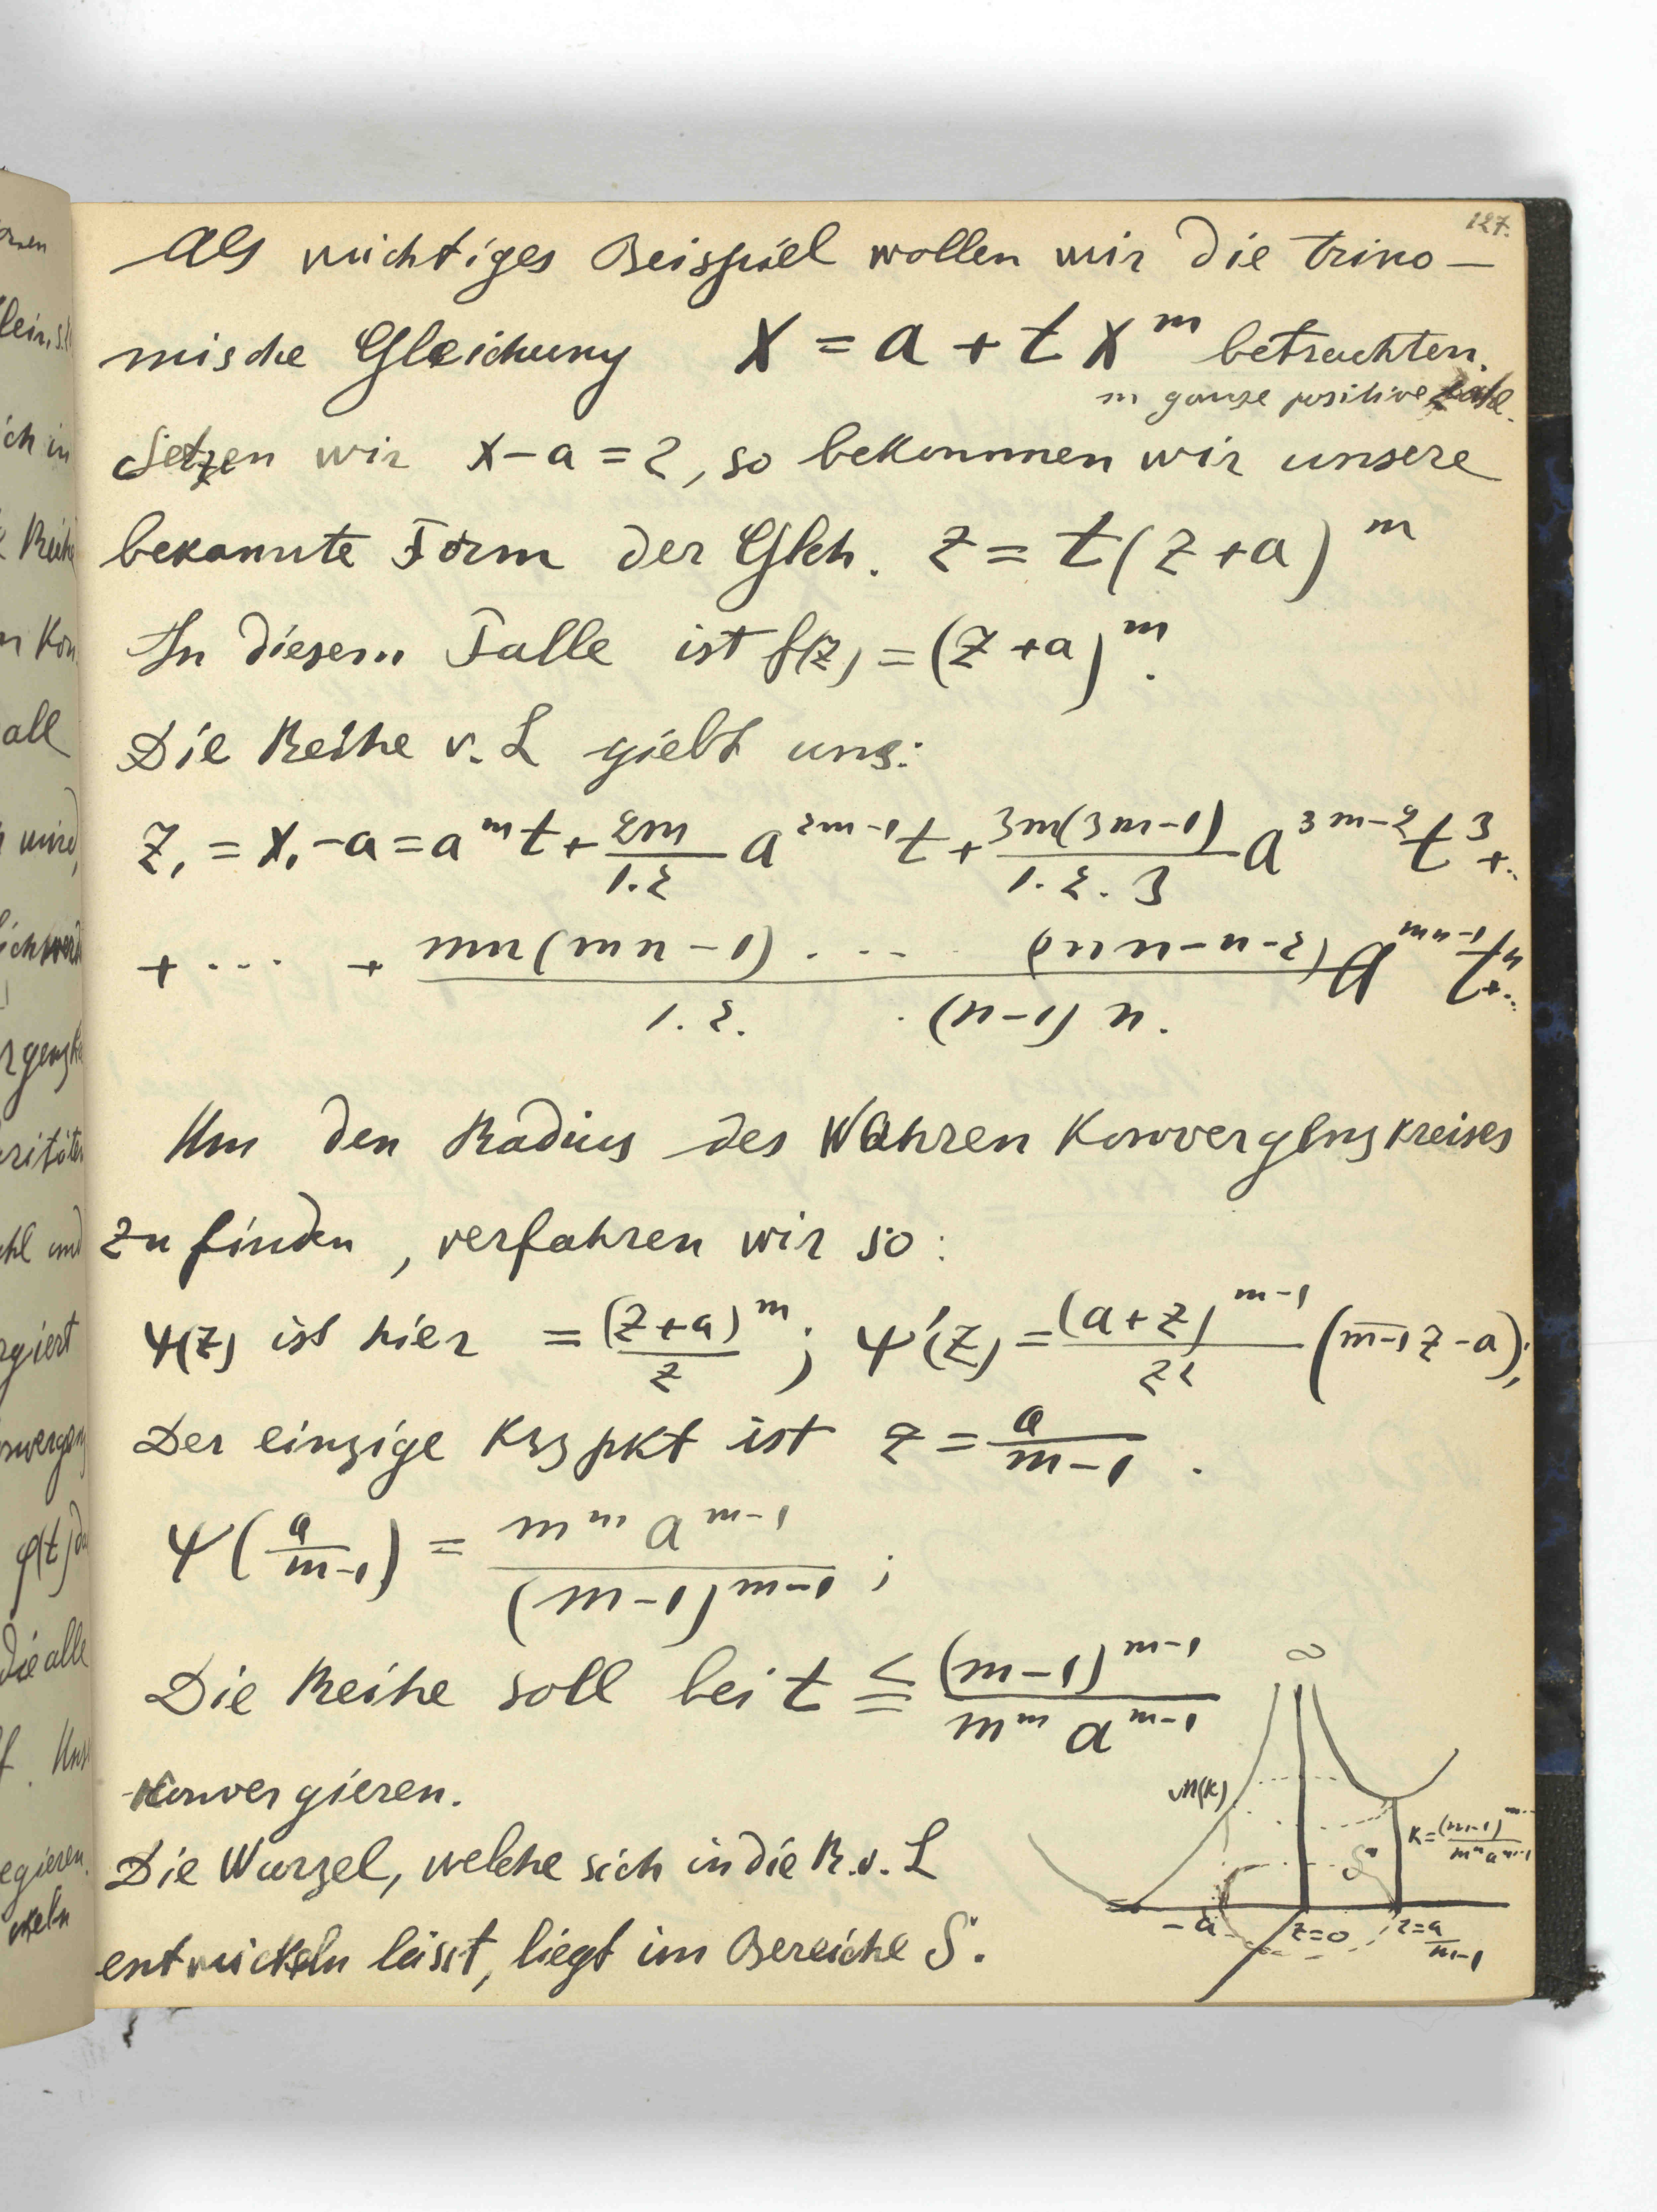 127.
Als wichtiges Beispiel wollen wir die trino-
mische Gleichung x = a + t x^m betrachten.
m ganze positive Zahl.
Setzen wir x-a = z, so bekommen wir unsere
bekannte Form der Glch. z = t(z+a)^m
In diesem Falle ist f(z) = (z+a)^m.
Die Reihe v. L giebt uns:
z₁ = x₁-a = a^m t + 2m/1.2 a^{2m-1} t + 3m(3m-1)/1.2.3 a^{3m-2} t^3 + ..
+ ... + mn(mn-1) ..... (mn-n-2)/1.2. . (n-1) n. a^{mn-n} t^n + ..
Um den Radius des Wahren Konvergenzkreises
zu finden, verfahren wir so:
ψ(z) ist hier = (z+a)^m/z ; ψ'(z) = (a+z)^{m-1}/z² (m-1 z-a);
Der einzige Krzpkt ist z = a/m-1 .
ψ(a/m-1) = m^m a^{m-1}/(m-1)^{m-1} ;
Die Reihe soll bei t ≦ (m-1)^{m-1}/m^m a^{m-1}
Konvergieren.
Die Wurzel, welche sich in die R.v. L
entwickeln lässt, liegt im Bereiche S.
∞
K = (m-1)^{m-1}/m^m a^{m-1}
S
-a z=0 z=a/m-1
all
rgiert
φ(t)
Die alle
egieren.